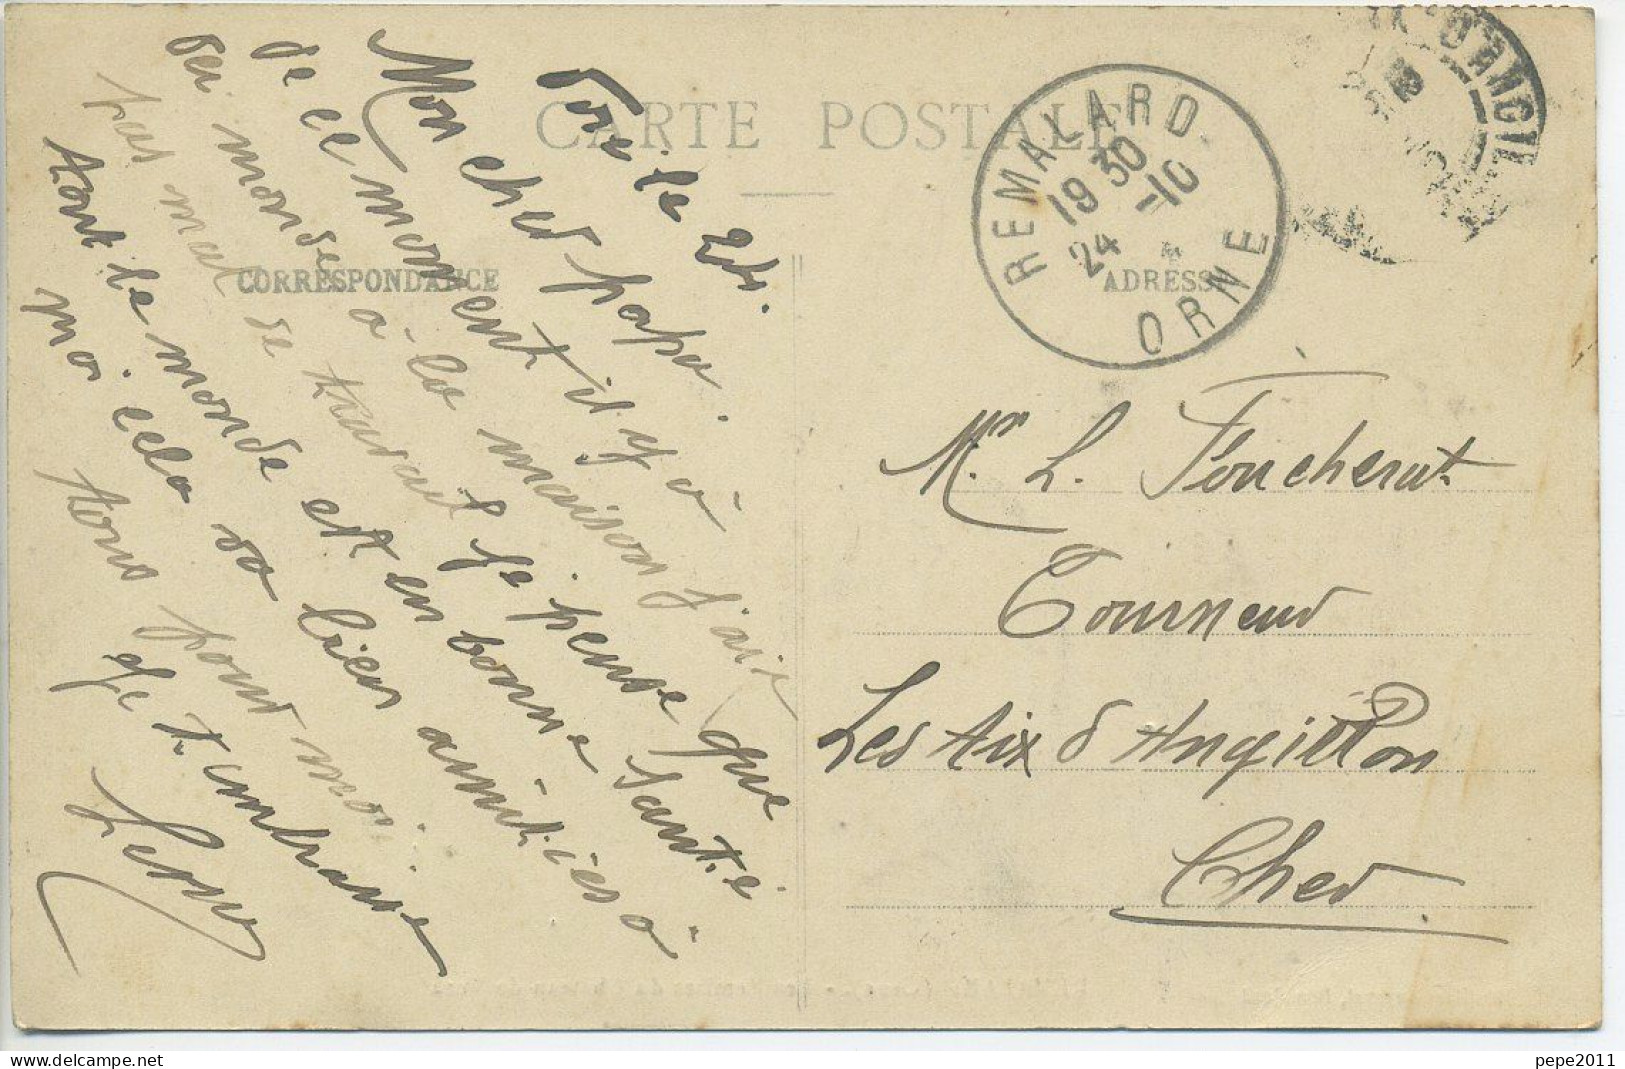 CARTE POSTALE
CORRESPONDANCE
ADRESSE
REMALARD
19 30
24 -10
ORNE
le 24.
Mon cher papa.
de ce moment il y a
du monde à la maison j'ai
pas mal de travail je pense que
tout le monde est en bonne santé
moi cela va bien amitiés à
tous pour moi.
Je t'embrasse
Mr. L. Foucherat
Tourneur
Les Aix d'Angillon
Cher.
pepe2011